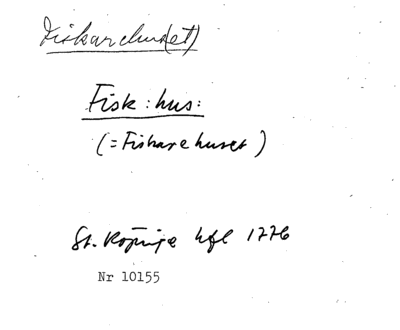 Fiskarehus(et)
Fisk: hus:
(= Fiskarehuset)
St. Köpinge hfl 1776
Nr 10155